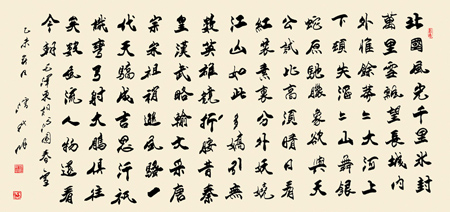 北國風光千里冰封
萬里雪飄望長城内
外惟餘莽々大河上
下頓失滔々山舞銀
蛇原馳蠟象欲與天
公試比高須晴日看
紅裝素裹分外妖嬈
江山如此多嬌引無
數英雄競折腰昔秦
皇漢武略輸文采唐
宗宋祖稍遜風騷一
代天驕成吉思汗祇
識彎弓射大鵰俱往
矣數風流人物還看
今朝 毛澤東詞沁園春雪
乙未